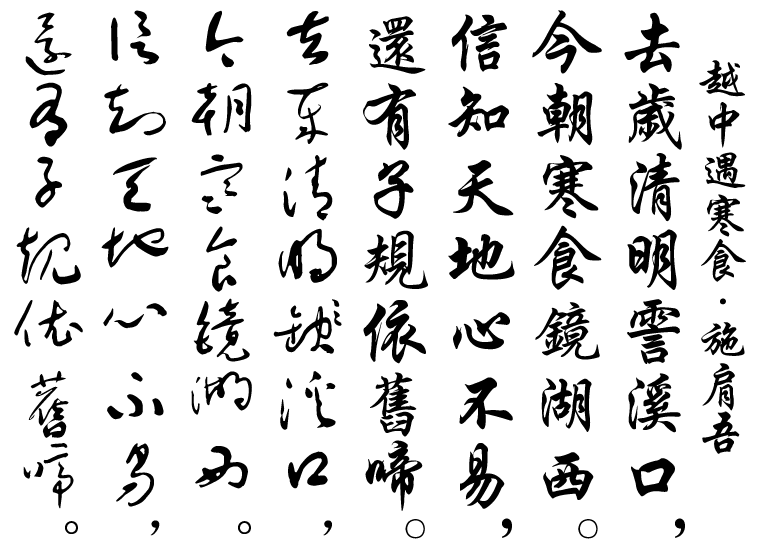 越中遇寒食·施肩吾
去歲清明霅溪口，
今朝寒食鏡湖西。
信知天地心不易，
還有子規依舊啼。
去歲清明霅溪口，
今朝寒食鏡湖西。
信知天地心不易，
還有子規依舊啼。